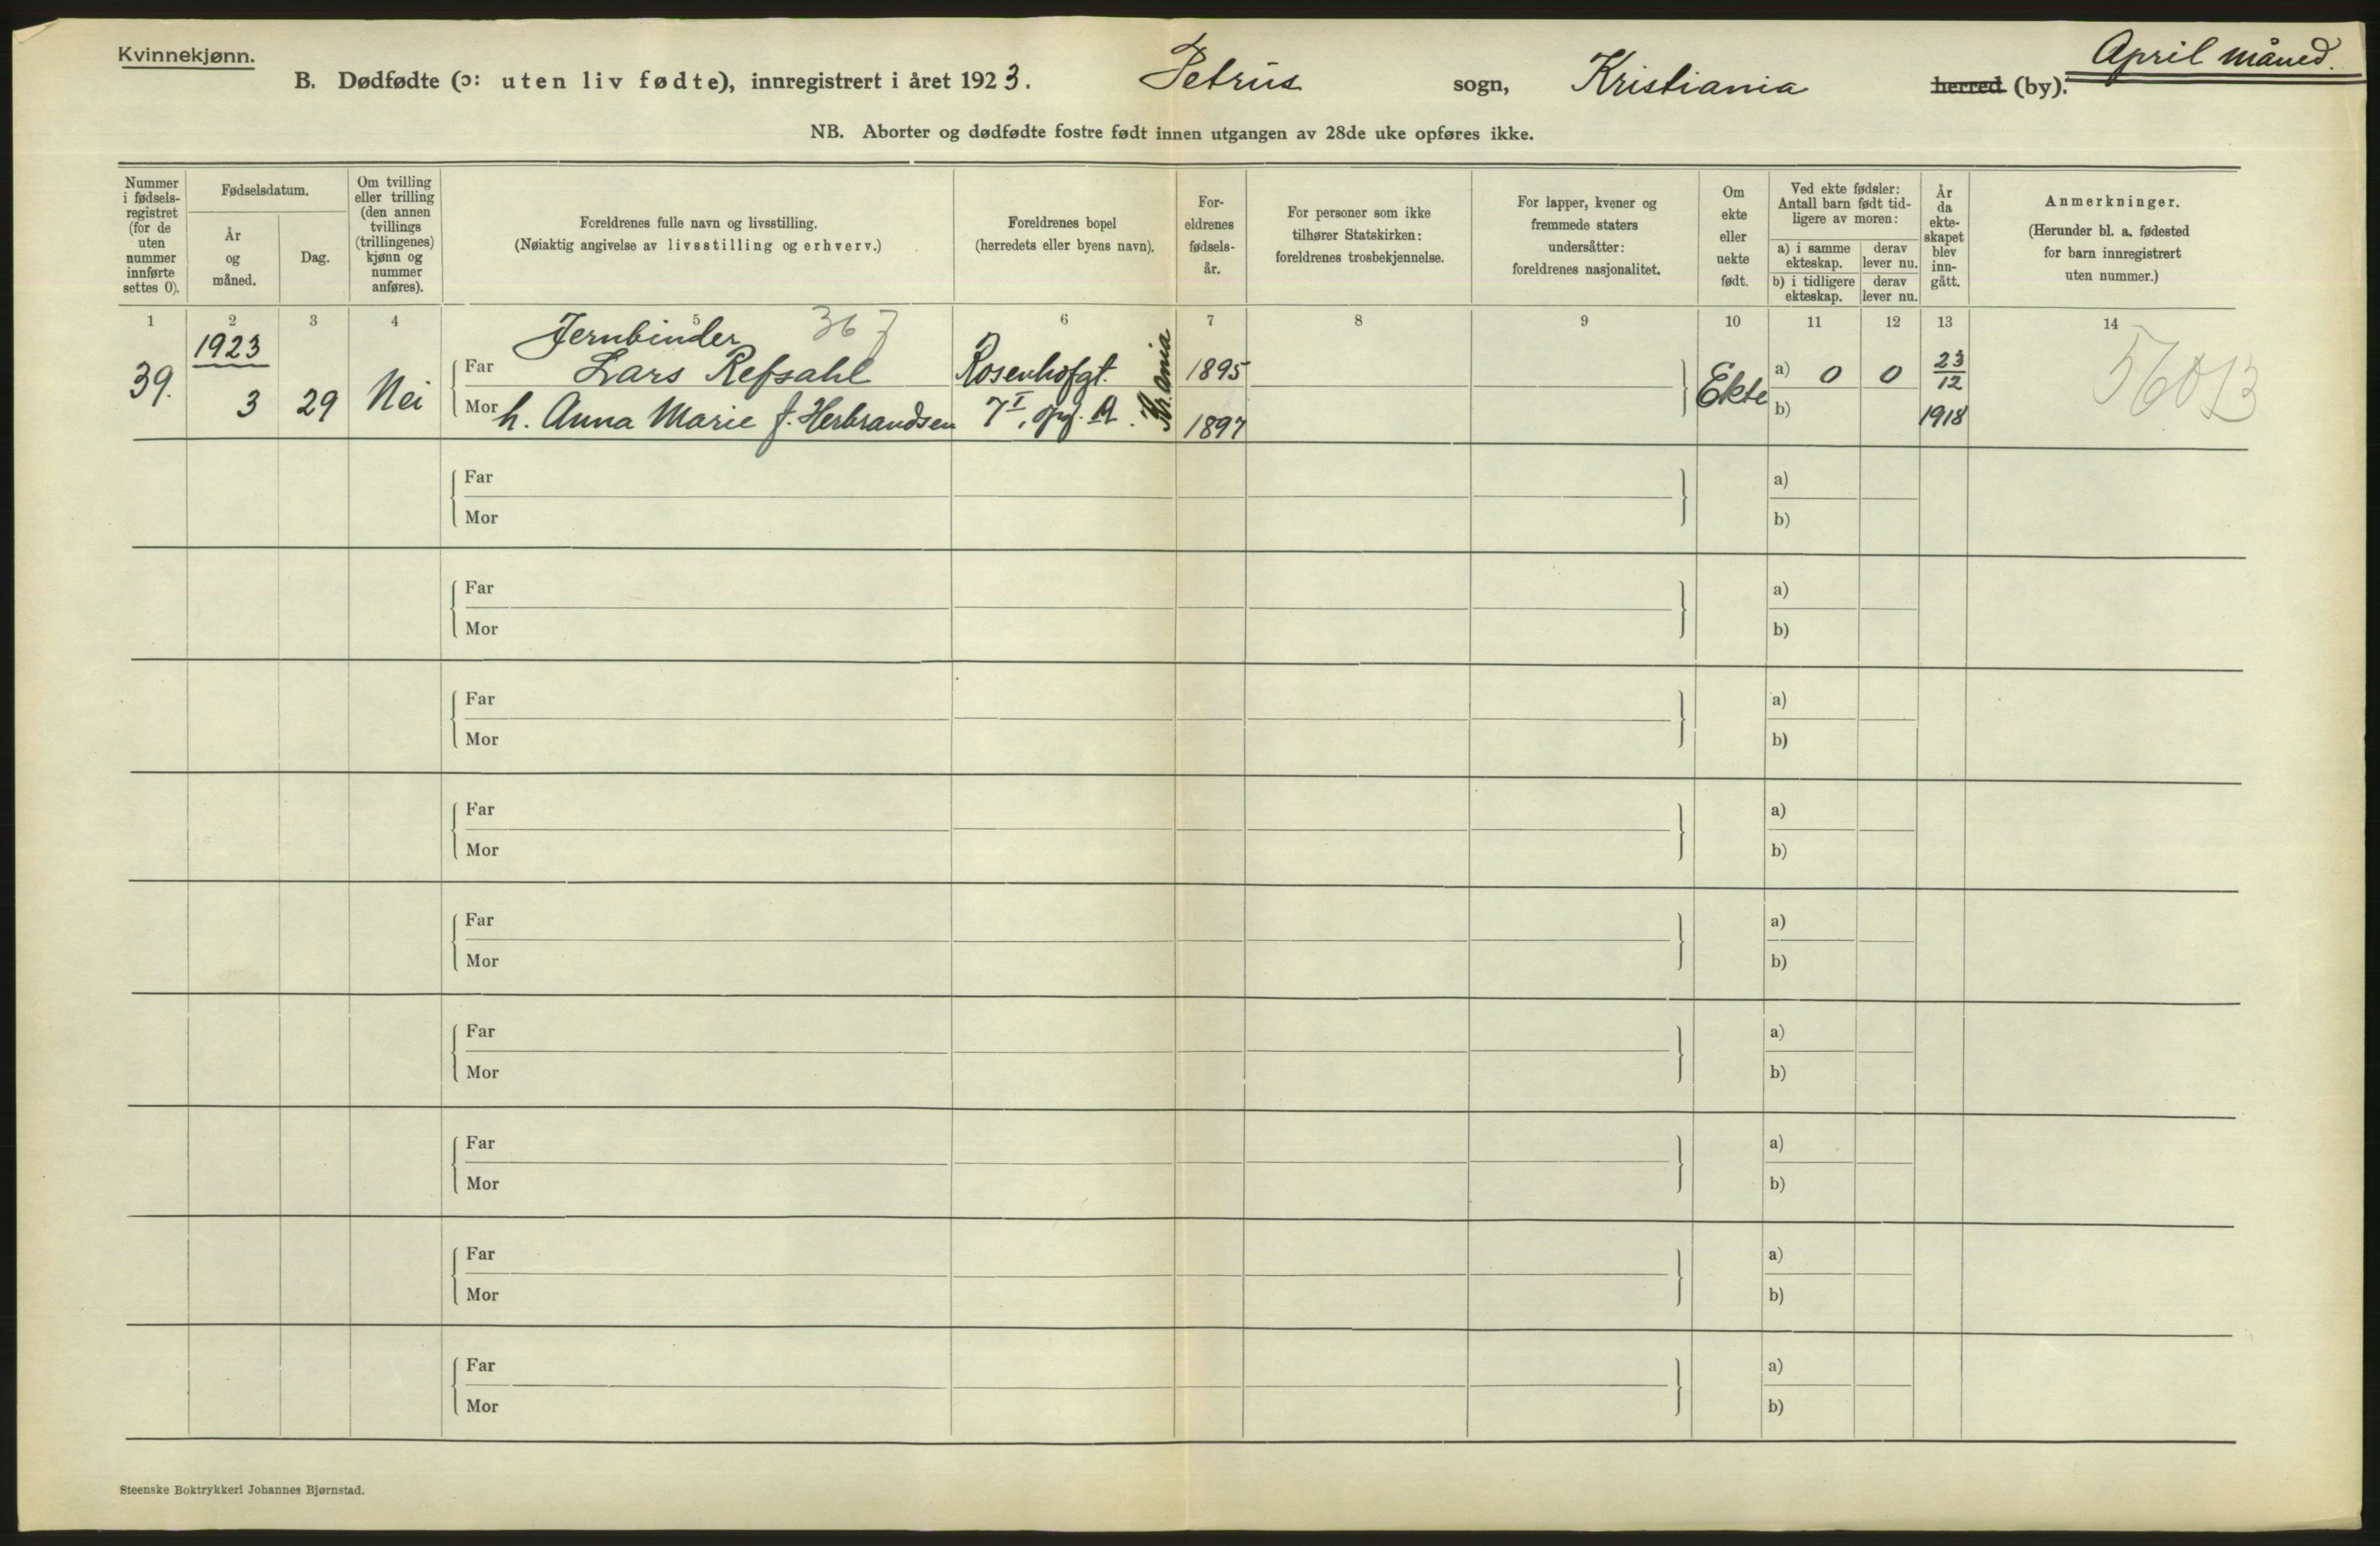 Kvinnekjønn.
April måned.
B. Dødfødte (ɔ: uten liv fødte), innregistrert i året 1923. Petrus sogn, Kristiania herred (by).
NB. Aborter og dødfødte fostre født innen utgangen av 28de uke opføres ikke.
Nummer i fødselsregistret (for de uten nummer innførte settes 0).
Fødselsdatum.
År og måned.
Dag.
Om tvilling eller trilling (den annen tvillings (trillingenes) kjønn og nummer anføres).
Foreldrenes fulle navn og livsstilling.
(Nøiaktig angivelse av livsstilling og erhverv.)
Foreldrenes bopel
(herredets eller byens navn).
Foreldrenes fødselsår.
For personer som ikke tilhører Statskirken: foreldrenes trosbekjennelse.
For lapper, kvener og fremmede staters undersåtter: foreldrenes nasjonalitet.
Om ekte eller uekte født.
Ved ekte fødsler: Antall barn født tidligere av moren:
a) i samme ekteskap.
derav lever nu.
b) i tidligere ekteskap.
derav lever nu.
År da ekteskapet blev inngått.
Anmerkninger.
(Herunder bl. a. fødested for barn innregistrert uten nummer.)
1 2 3 4 5 6 7 8 9 10 11 12 13 14
1923 Jernbinder 367
39. 3 29 Nei
Far Lars Refsahl Rosenhofgt. 1895
Mor h. Anna Marie f. Herbrandsen 7 I, opg. A. Kr.ania 1897
Ekte a) 0 0 23/12 1918
b)
Far a)
Mor b)
Far a)
Mor b)
Far a)
Mor b)
Far a)
Mor b)
Far a)
Mor b)
Far a)
Mor b)
Far a)
Mor b)
Far a)
Mor b)
Far a)
Mor b)
Steenske Boktrykkeri Johannes Bjørnstad.